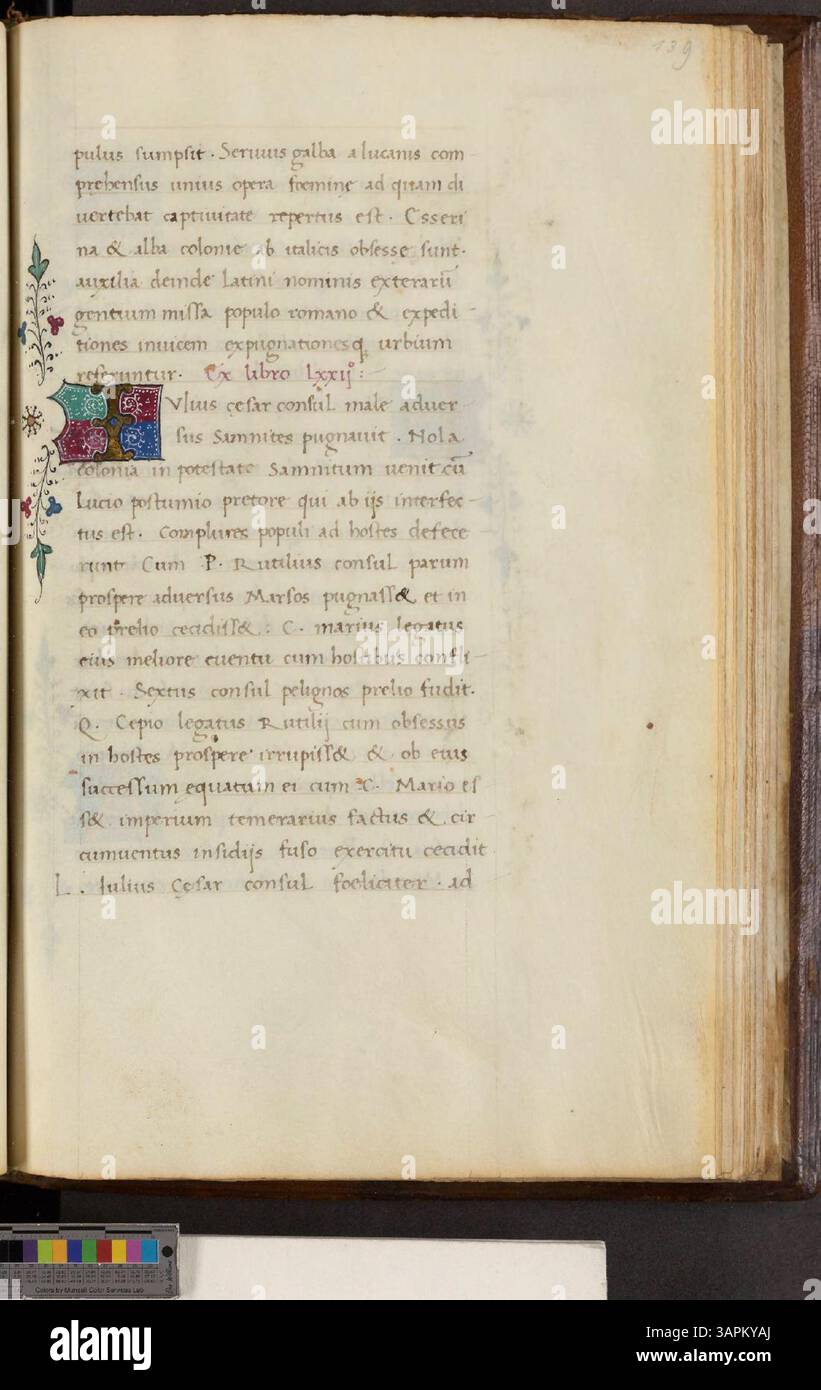 139
pulus sumpsit. Seruius galba a lucanis com
prehensus unius opera foemine ad quam di
uertebat captiuitate repertus est. Esseri
na & alba colonie ab italicis obsesse sunt.
auxilia deinde latini nominis exterarū
gentium missa populo romano & expedi
tiones inuicem expugnationesq; urbium
referuntur. Ex libro lxxij°:
IVlius cesar consul male aduer
sus Samnites pugnauit. Nola
colonia in potestate Samnitum uenit cū
Lucio postumio pretore qui ab ijs interfec
tus est. Complures populi ad hostes defece
runt Cum P. Rutilius consul parum
prospere aduersus Marsos pugnass& et in
eo prelio cecidiss&: C. marius legatus
eius meliore euentu cum hostibus confli
xit. Sextus consul pelignos prelio fudit.
Q. Cepio legatus Rutilij cum obsessus
in hostes prospere irrupiss& & ob eius
successum equatum ei cum C. Mario es
s& imperium temerarius factus & cir
cumuentus insidijs fuso exercitu cecidit
L. Iulius Cesar consul foeliciter. ad
Colors by Munsell Color Services Lab
alamy
Image ID: 3APKYAJ
www.alamy.com